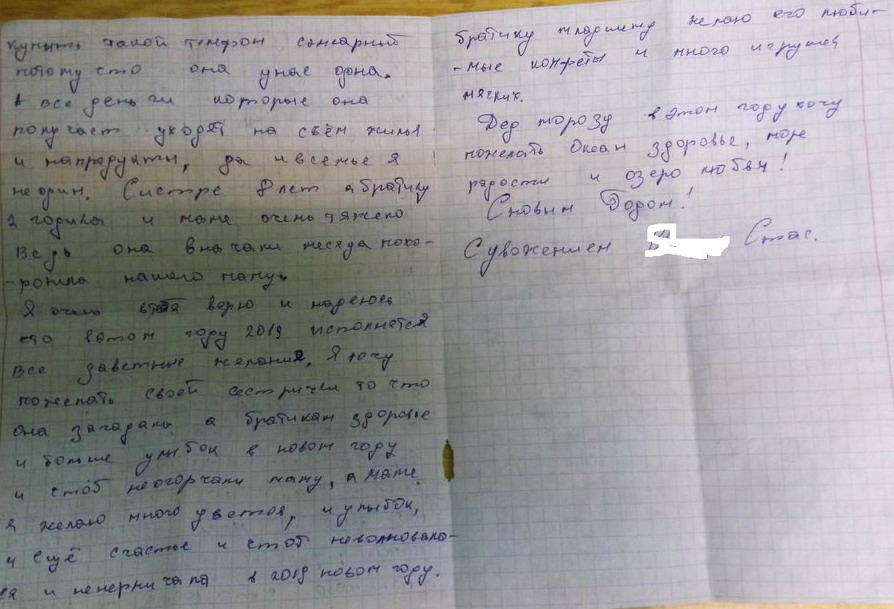 купить такой телефон сенсарный
потому сто она унас одна.
А все деньги которые она
получает уходят на съём жилья
и напродукты, да ивсемье я
не один. Систре 8 лет а братику
2 годика и маме очень тяжело
Ведь она вначали месяца похо-
-ронила нашего папу.
Я очень верю и надеюсь
сто вэтом году 2019 исполнется
все заветные желания, Я хочу
пожелать своей сестричке то что
она загадала а братикам здоровье
и больше улыбок в новом году
и стоб неогорчали маму, а маме
я желаю много цветов, и улыбок,
и ещё счастье и стоб неволновала-
ся и ненервничала в 2019 новом году.
братику младшему желаю его люби-
-мые конфеты и много игрушек
мягких.
Дед морозу вэтом году хочу
пожелать Океан здоровье, море
радости и озеро любви!
Сновым Годом!
Суважением Стас.